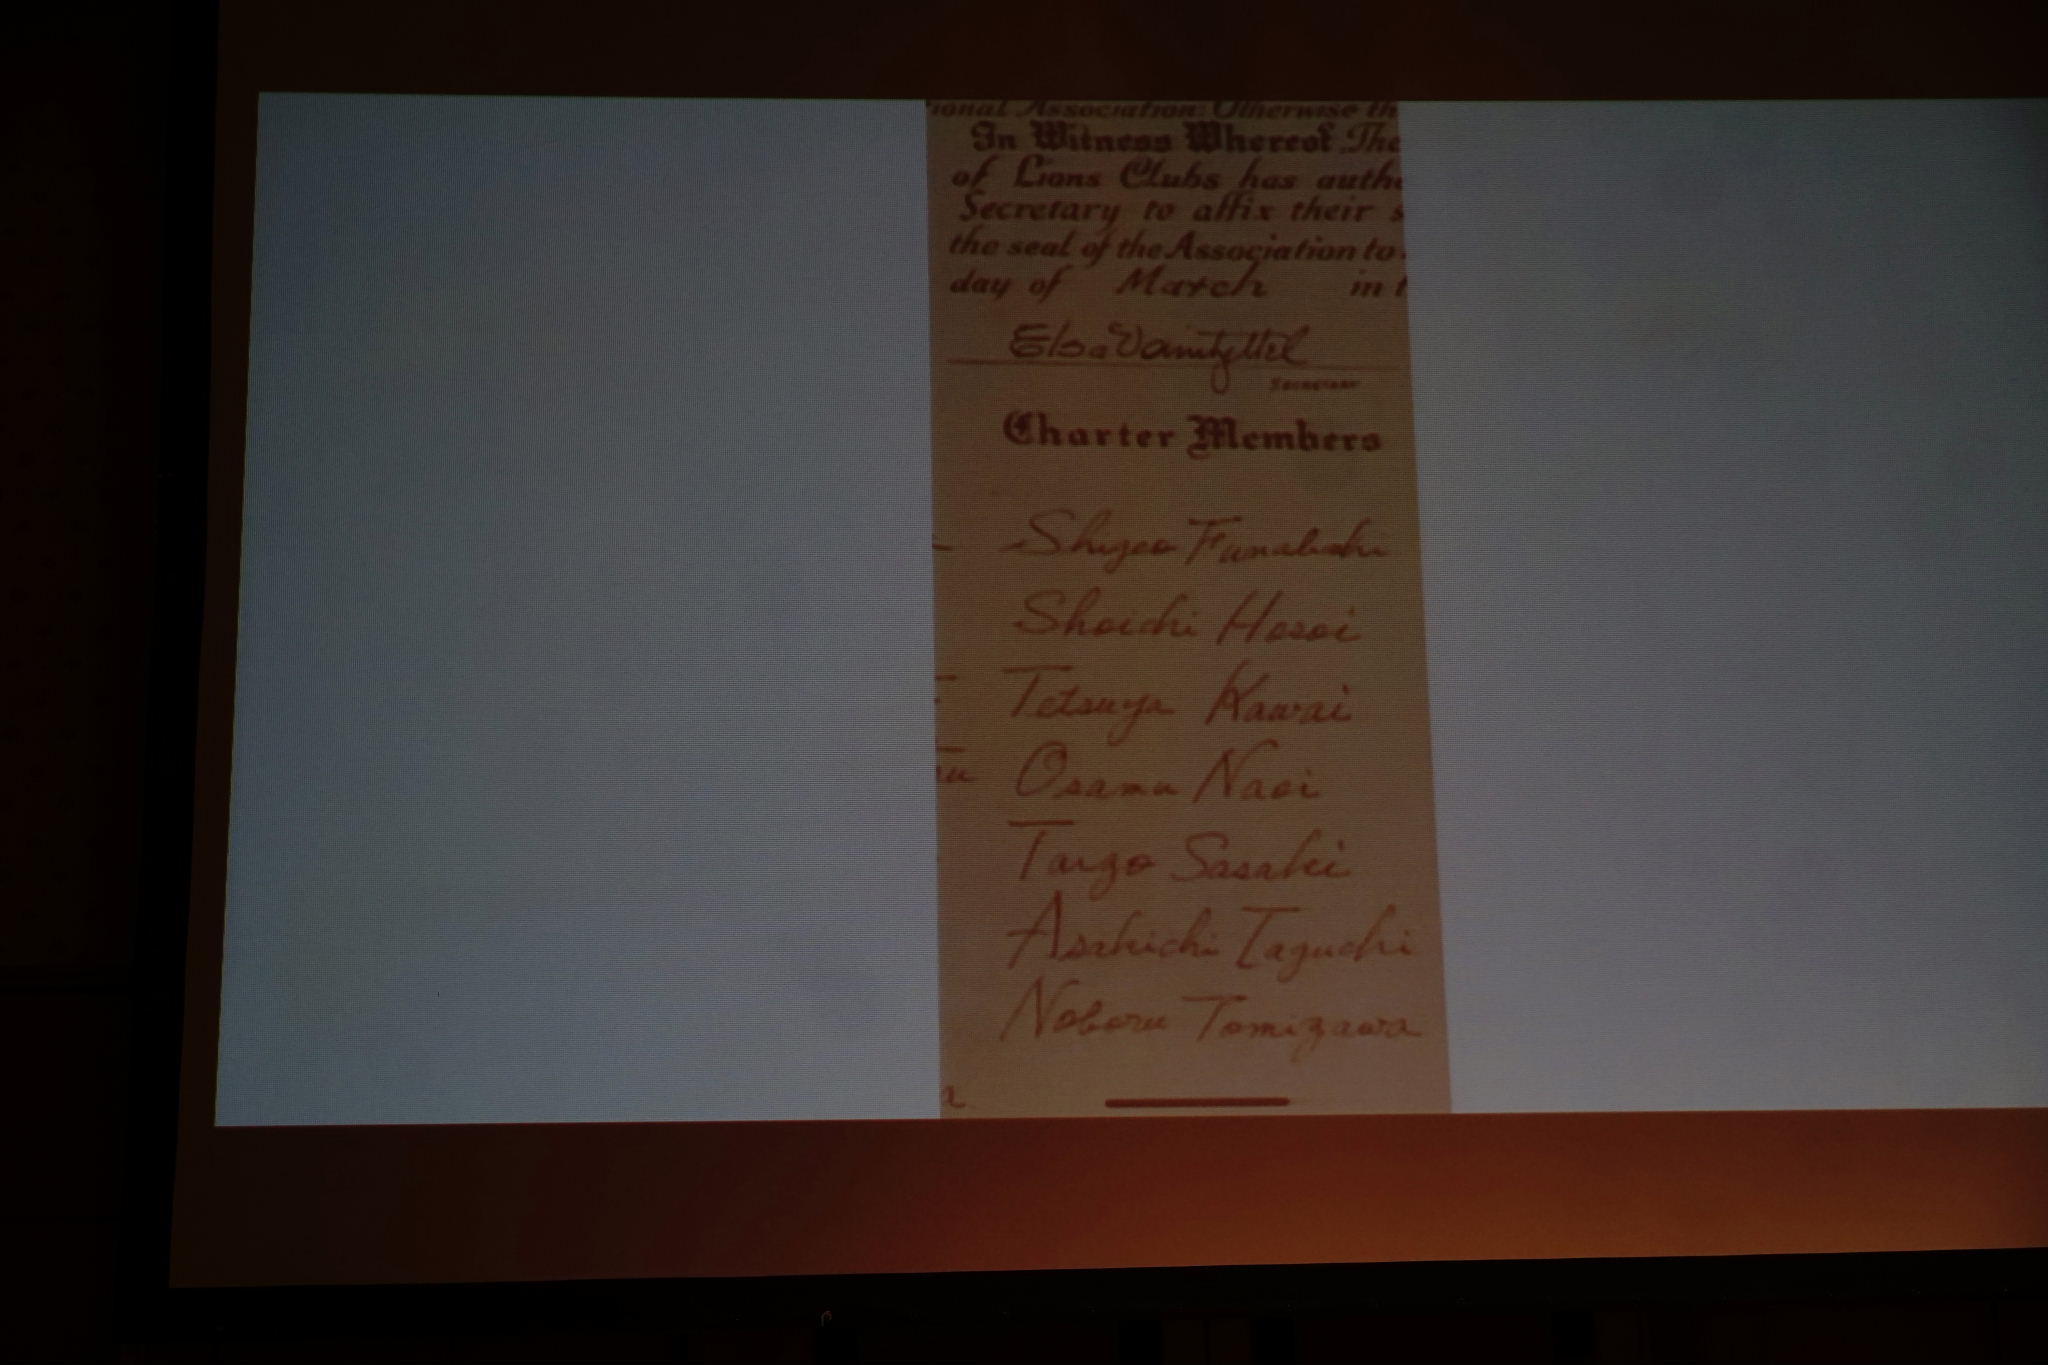 ional Association. Otherwise th
In Witness Whereof The
of Lions Clubs has autho
Secretary to affix their s
the seal of the Association to
day of March in t
Secretary
Charter Members
Shigeo Funabashi
Shoichi Hosoi
Tetsuya Kawai
Osamu Naoi
Taigo Sasaki
Asakichi Taguchi
Noboru Tomizawa